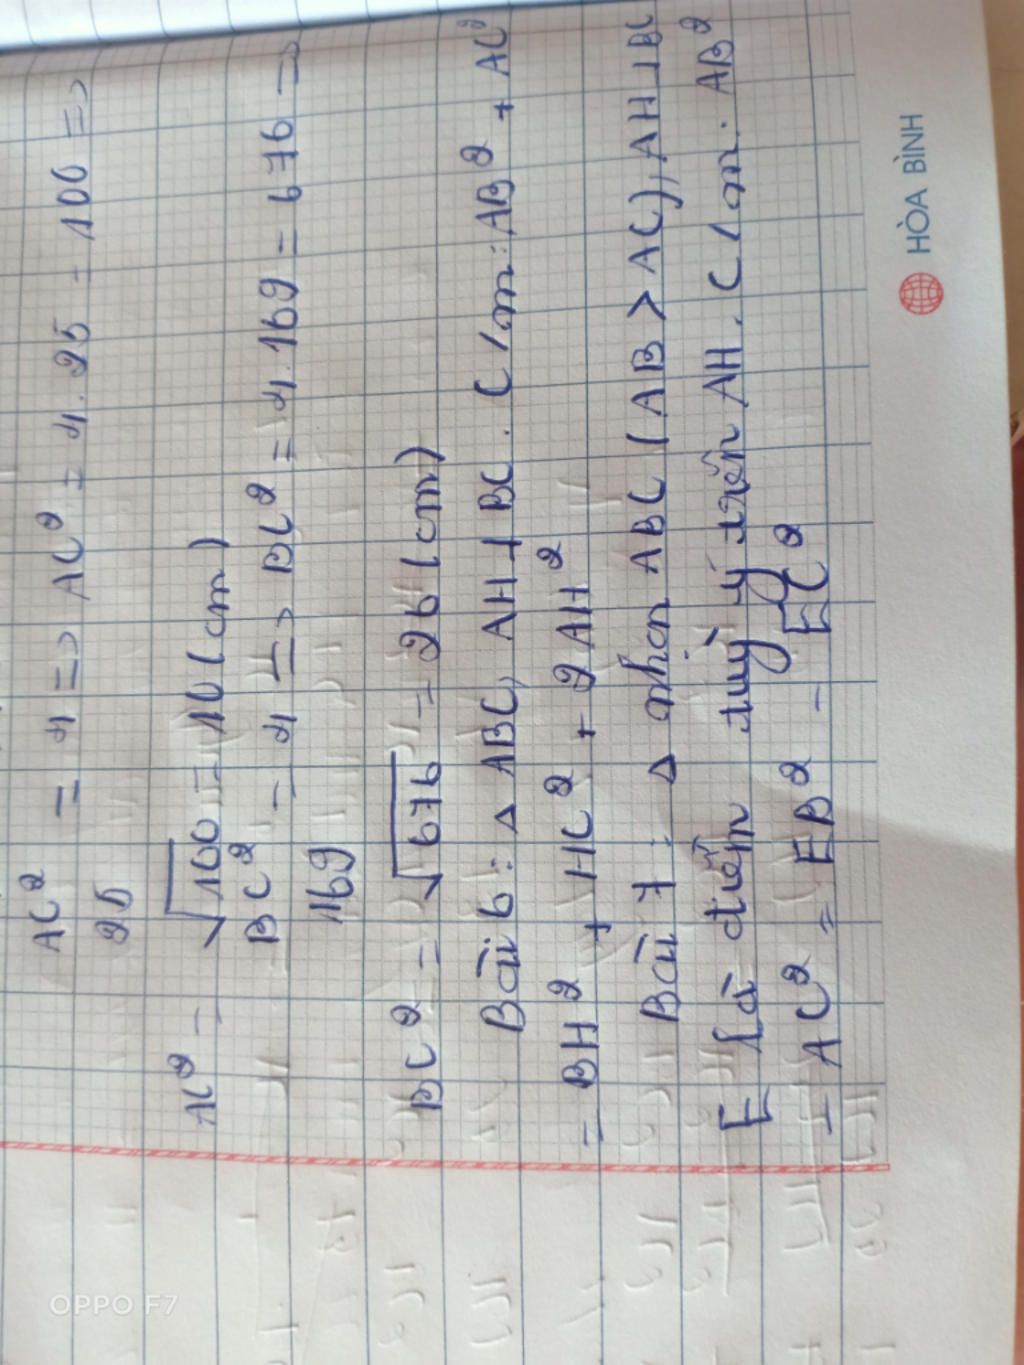 AC² = 4 => AC² = 4.25 = 100 =>
25
AC² = √100 = 10 (cm)
BC² = 4 => BC² = 4.169 = 676 =>
169
BC² = √676 = 26 (cm)
Bài 6: Δ ABC, AH ⊥ BC. C/m: AB² + AC²
= BH² + HC² + 2AH²
Bài 7: Δ nhọn ABC (AB > AC), AH ⊥ BC
E là điểm tuỳ ý trên AH. C/m. AB²
- AC² = EB² - EC²
HÒA BÌNH
OPPO F7